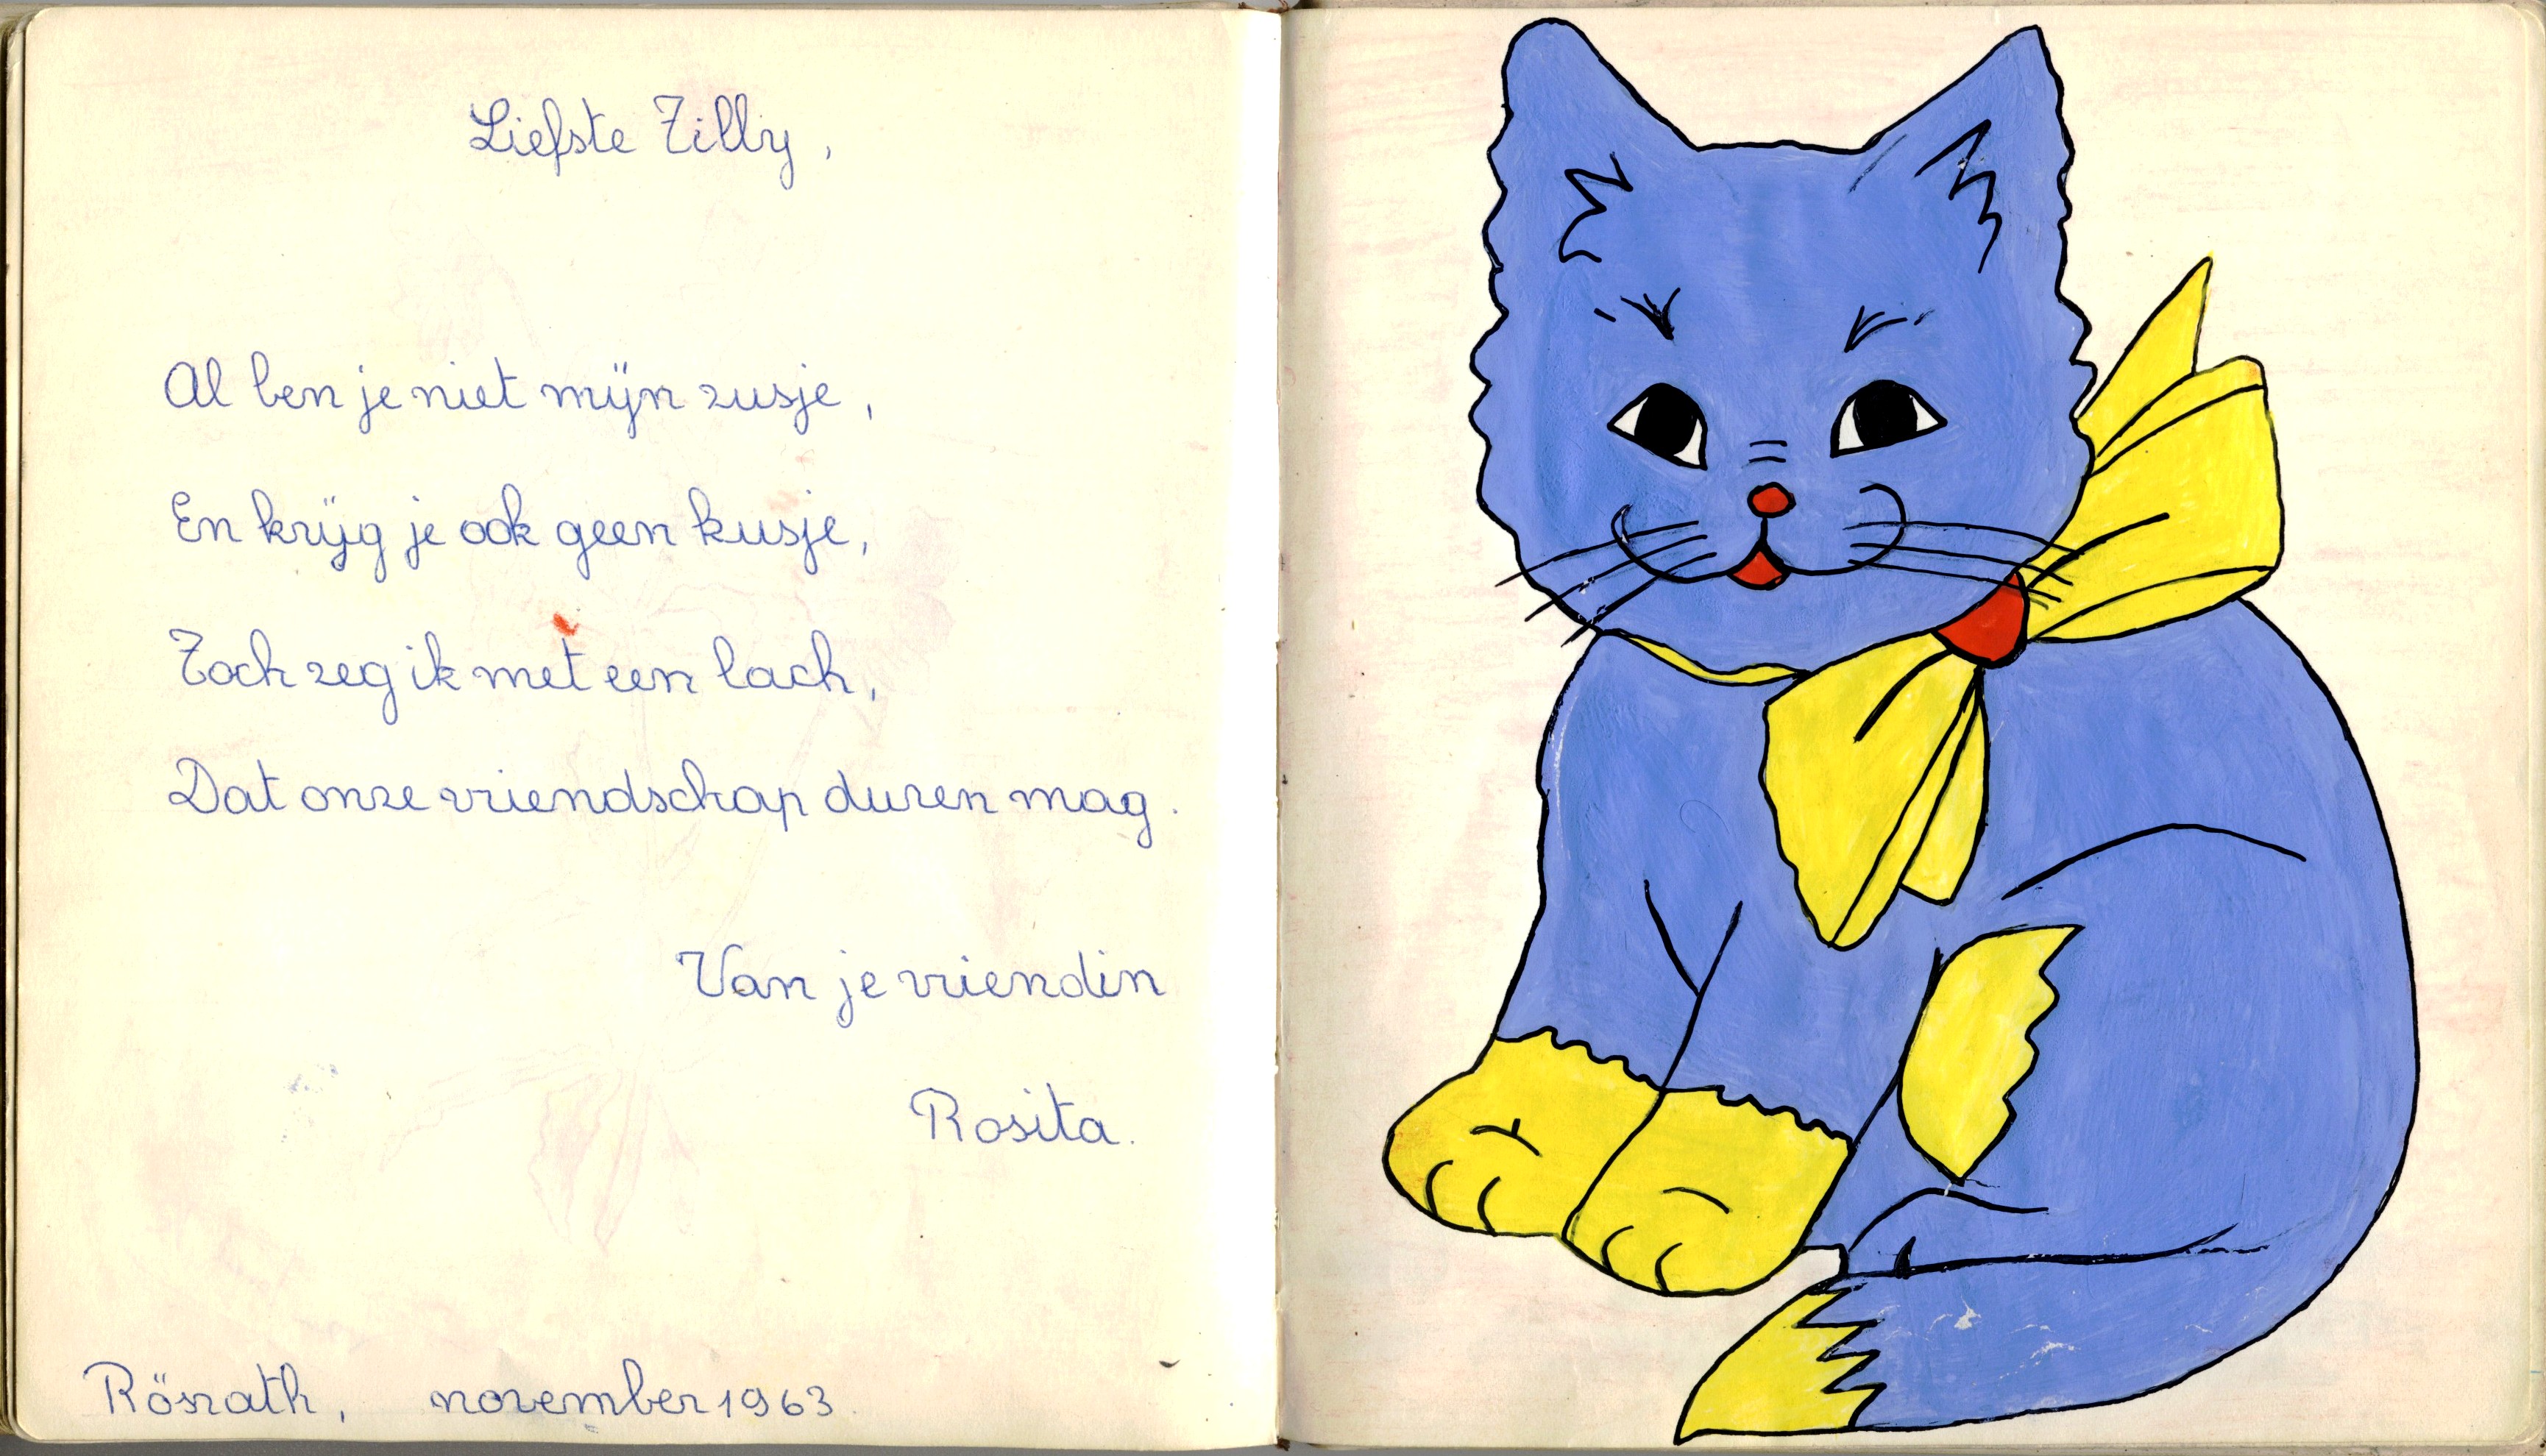 Liefste Tilly,
Al ben je niet mijn zusje,
En krijg je ook geen kusje,
Toch zeg ik met een lach,
Dat onze vriendschap duren mag.
Van je vriendin
Rosita.
Rösrath, november 1963